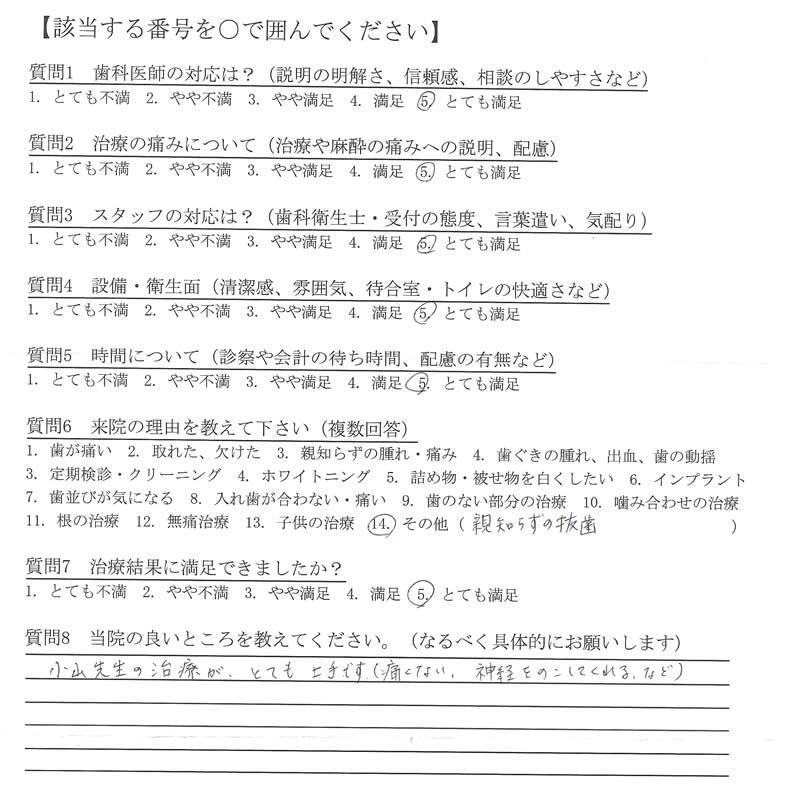 【該当する番号を○で囲んでください】
質問1 歯科医師の対応は?(説明の明解さ、信頼感、相談のしやすさなど)
1. とても不満 2. やや不満 3. やや満足 4. 満足 5. とても満足
質問2 治療の痛みについて(治療や麻酔の痛みへの説明、配慮)
1. とても不満 2. やや不満 3. やや満足 4. 満足 5. とても満足
質問3 スタッフの対応は?(歯科衛生士・受付の態度、言葉遣い、気配り)
1. とても不満 2. やや不満 3. やや満足 4. 満足 5. とても満足
質問4 設備・衛生面(清潔感、雰囲気、待合室・トイレの快適さなど)
1. とても不満 2. やや不満 3. やや満足 4. 満足 5. とても満足
質問5 時間について(診察や会計の待ち時間、配慮の有無など)
1. とても不満 2. やや不満 3. やや満足 4. 満足 5. とても満足
質問6 来院の理由を教えて下さい(複数回答)
1. 歯が痛い 2. 取れた、欠けた 3. 親知らずの腫れ・痛み 4. 歯ぐきの腫れ、出血、歯の動揺
3. 定期検診・クリーニング 4. ホワイトニング 5. 詰め物・被せ物を白くしたい 6. インプラント
7. 歯並びが気になる 8. 入れ歯が合わない・痛い 9. 歯のない部分の治療 10. 噛み合わせの治療
11. 根の治療 12. 無痛治療 13. 子供の治療 14. その他(親知らずの抜歯)
質問7 治療結果に満足できましたか?
1. とても不満 2. やや不満 3. やや満足 4. 満足 5. とても満足
質問8 当院の良いところを教えてください。(なるべく具体的にお願いします)
小山先生の治療が、とても上手です(痛くない、神経をのこしてくれる、など)